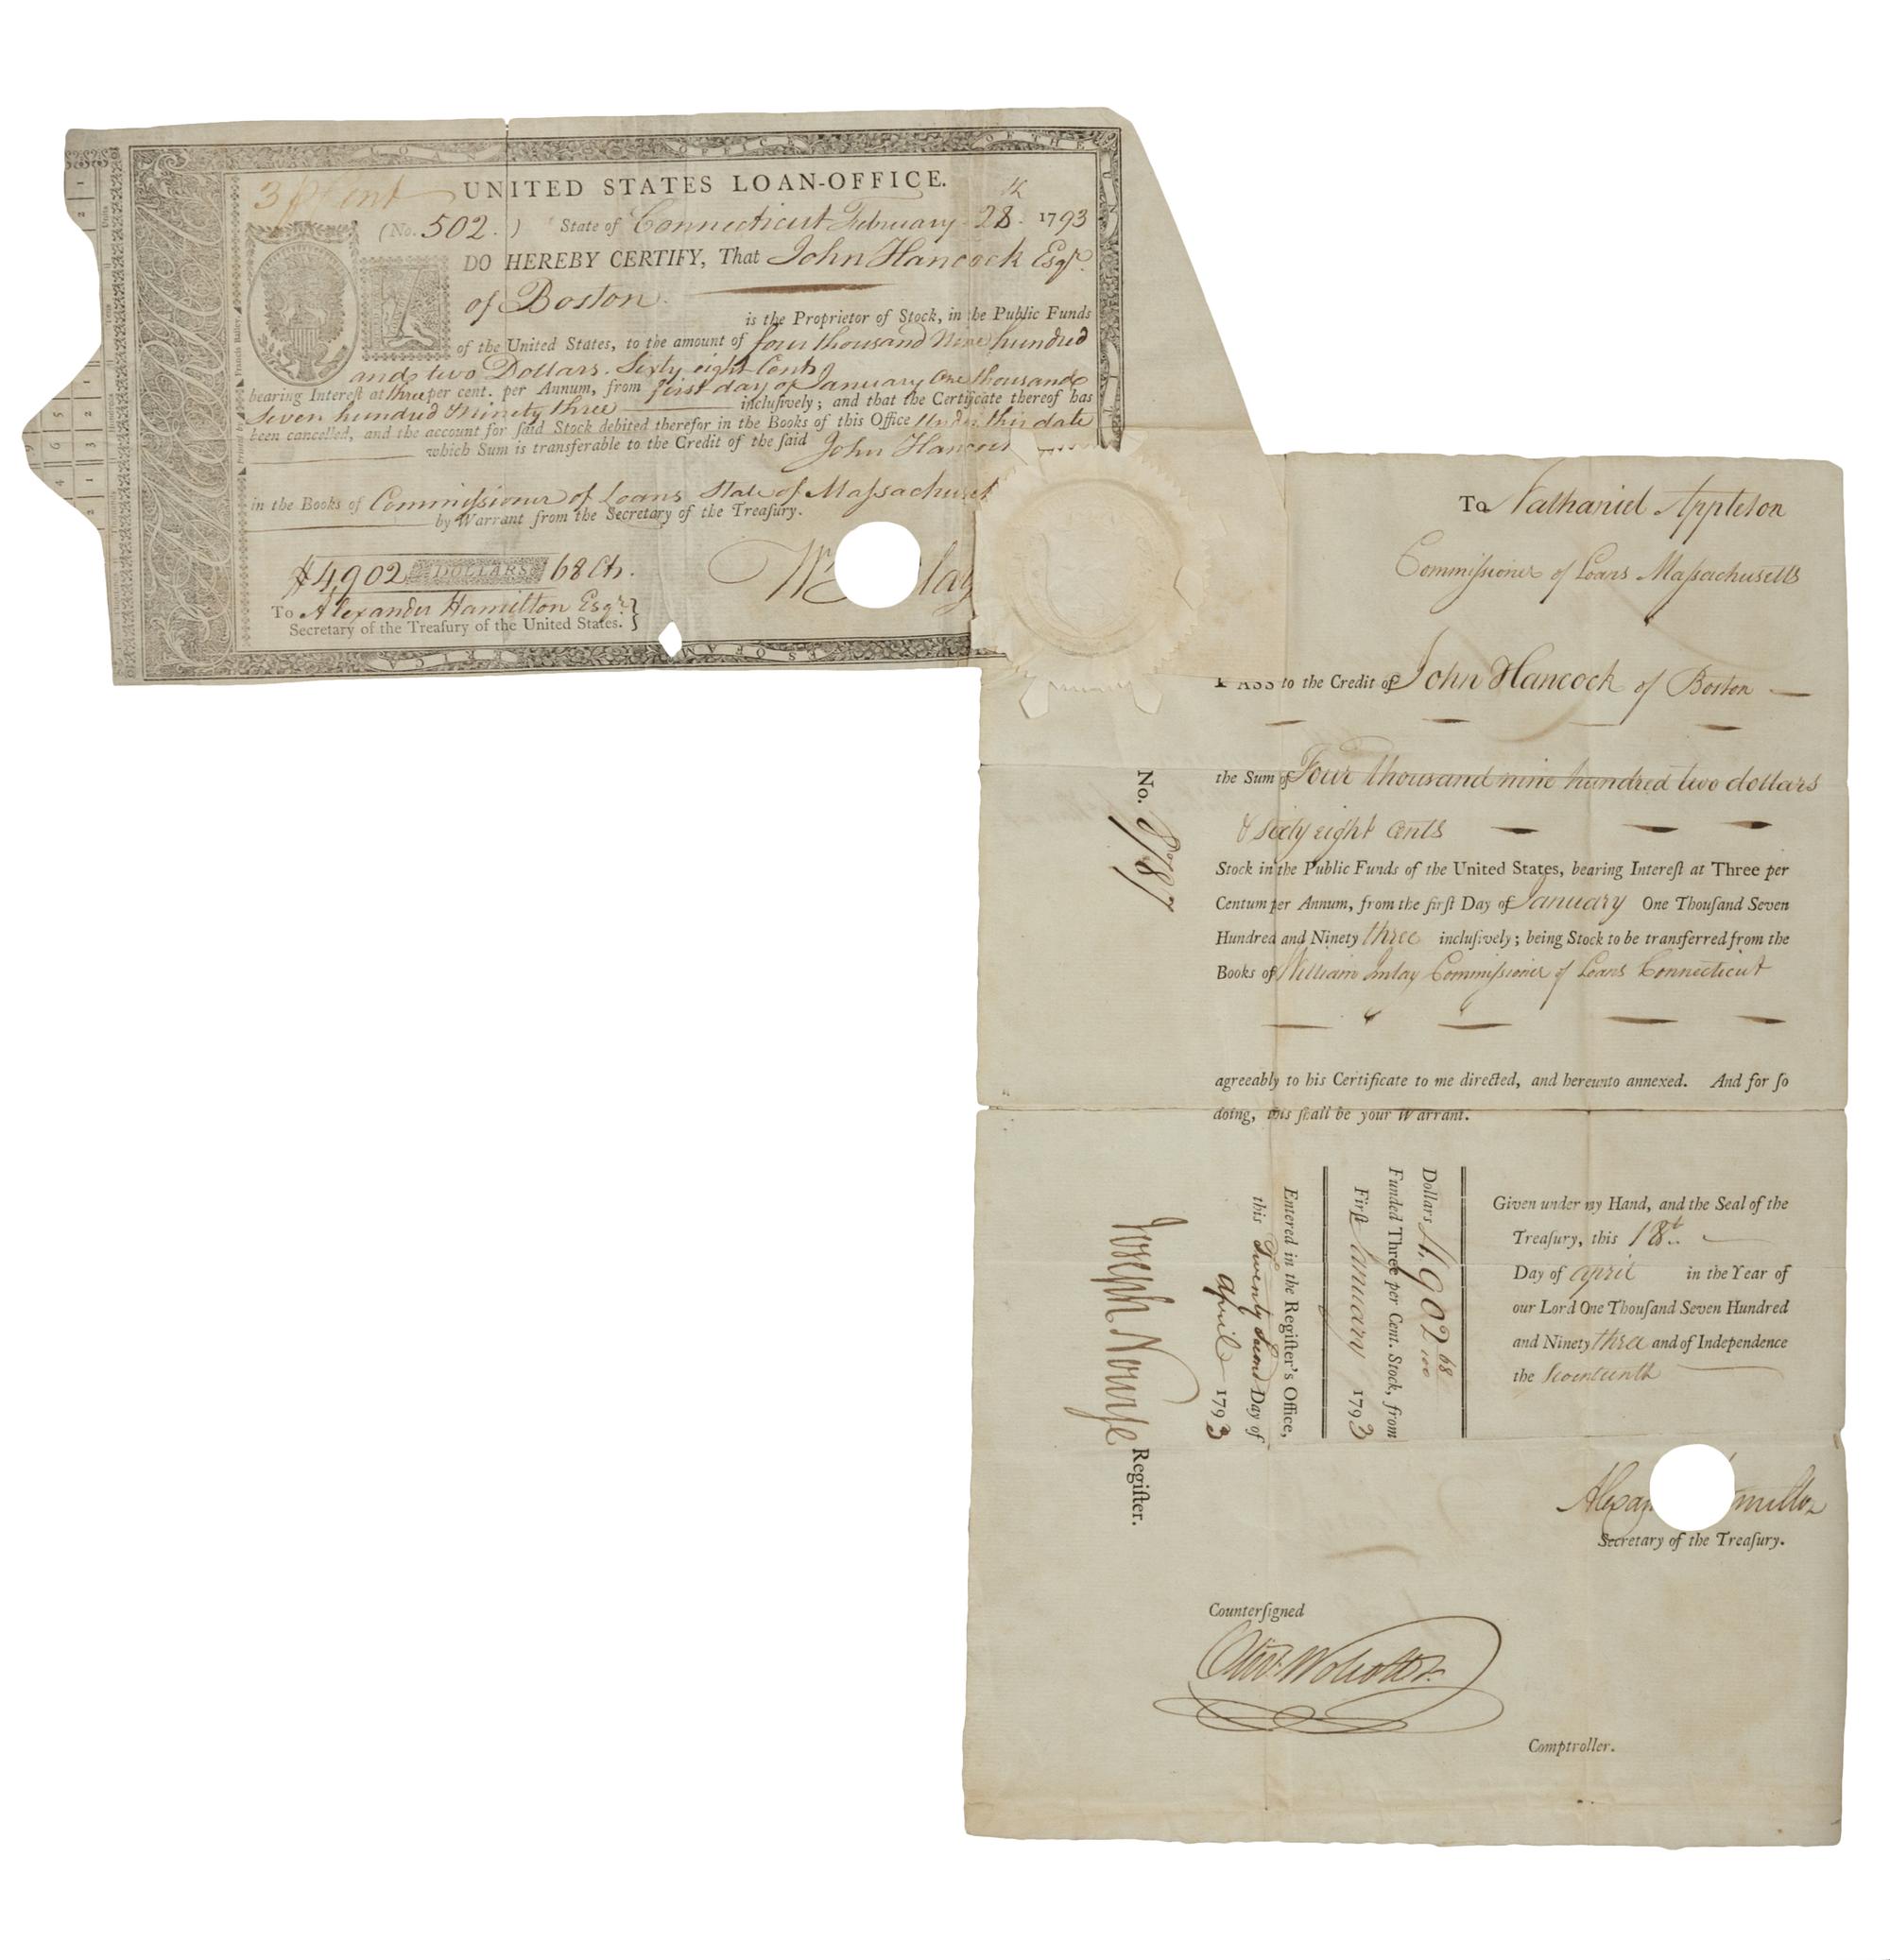 LOAN OFFICE OF THE
3 p Cent UNITED STATES LOAN-OFFICE.
(No. 502.) State of Connecticut February 28th 1793
I DO HEREBY CERTIFY, That John Hancock Esqr.
of Boston
is the Proprietor of Stock, in the Public Funds
of the United States, to the amount of four thousand Nine hundred
and two Dollars. Sixty eight Cents
bearing Intereſt at three per cent. per Annum, from first day of January One thousand
Seven hundred & Ninety three incluſively; and that the Certificate thereof has
been cancelled, and the account for ſaid Stock debited therefor in the Books of this Office Under this date
which Sum is transferable to the Credit of the ſaid John Hancock
in the Books of Commiſsioner of Loans State of Maſsachuset
by Warrant from the Secretary of the Treaſury.
$4,902 DOLLARS 68 Cts.
Wm lay
To Alexander Hamilton Esqr.}
Secretary of the Treaſury of the United States.
ES OF AMERICA
Printed by Francis Bailey
To Nathaniel Appleton
Commiſsioner of Loans Maſsachusetts
PASS to the Credit of John Hancock of Boston
the Sum of Four thousand nine hundred two dollars
& sixty eight cents
Stock in the Public Funds of the United States, bearing Intereſt at Three per
Centum per Annum, from the firſt Day of January One Thouſand Seven
Hundred and Ninety three incluſively; being Stock to be transferred from the
Books of William Imlay Commiſsioner of Loans Connecticut
agreeably to his Certificate to me directed, and hereunto annexed. And for ſo
doing, this ſhall be your Warrant.
No.
Given under my Hand, and the Seal of the
Treaſury, this 18th.
Day of april in the Year of
our Lord One Thouſand Seven Hundred
and Ninety three and of Independence
the Seventeenth
Dollars 4,902 68/100
Funded Three per Cent. Stock, from
Firſt January 1793
Entered in the Regiſter's Office,
this Twenty Second Day of
April 1793
Joseph Nourſe Regiſter.
Alexan milton
Secretary of the Treaſury.
Counterſigned
Olivr. Wolcott Jr.
Comptroller.